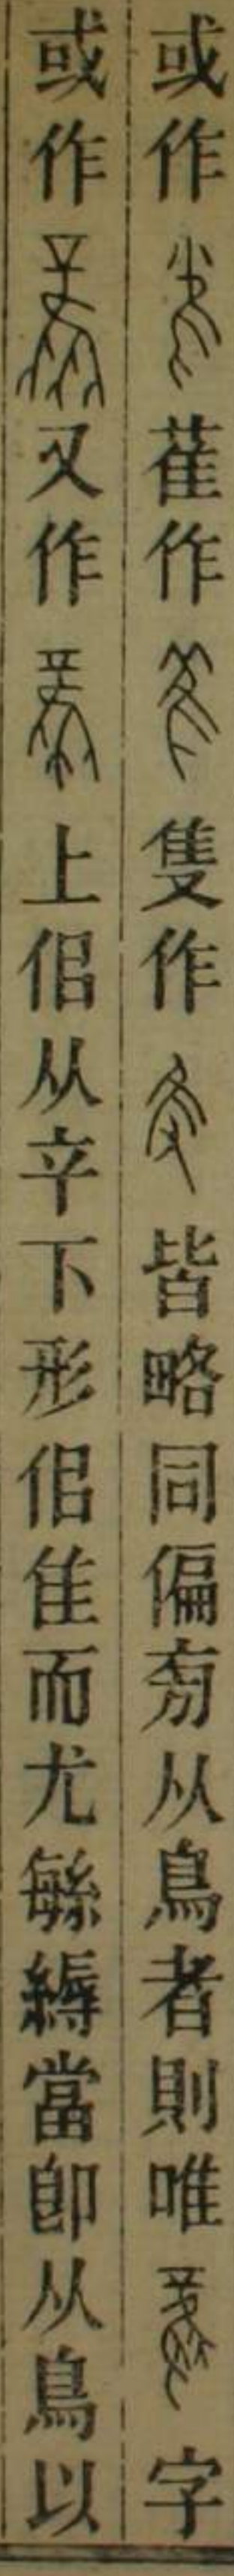 或作雈作隻作皆略同偏㫄从鳥者則唯字
或作又作上佀从辛下形佀隹而尤緐縟當卽从鳥以